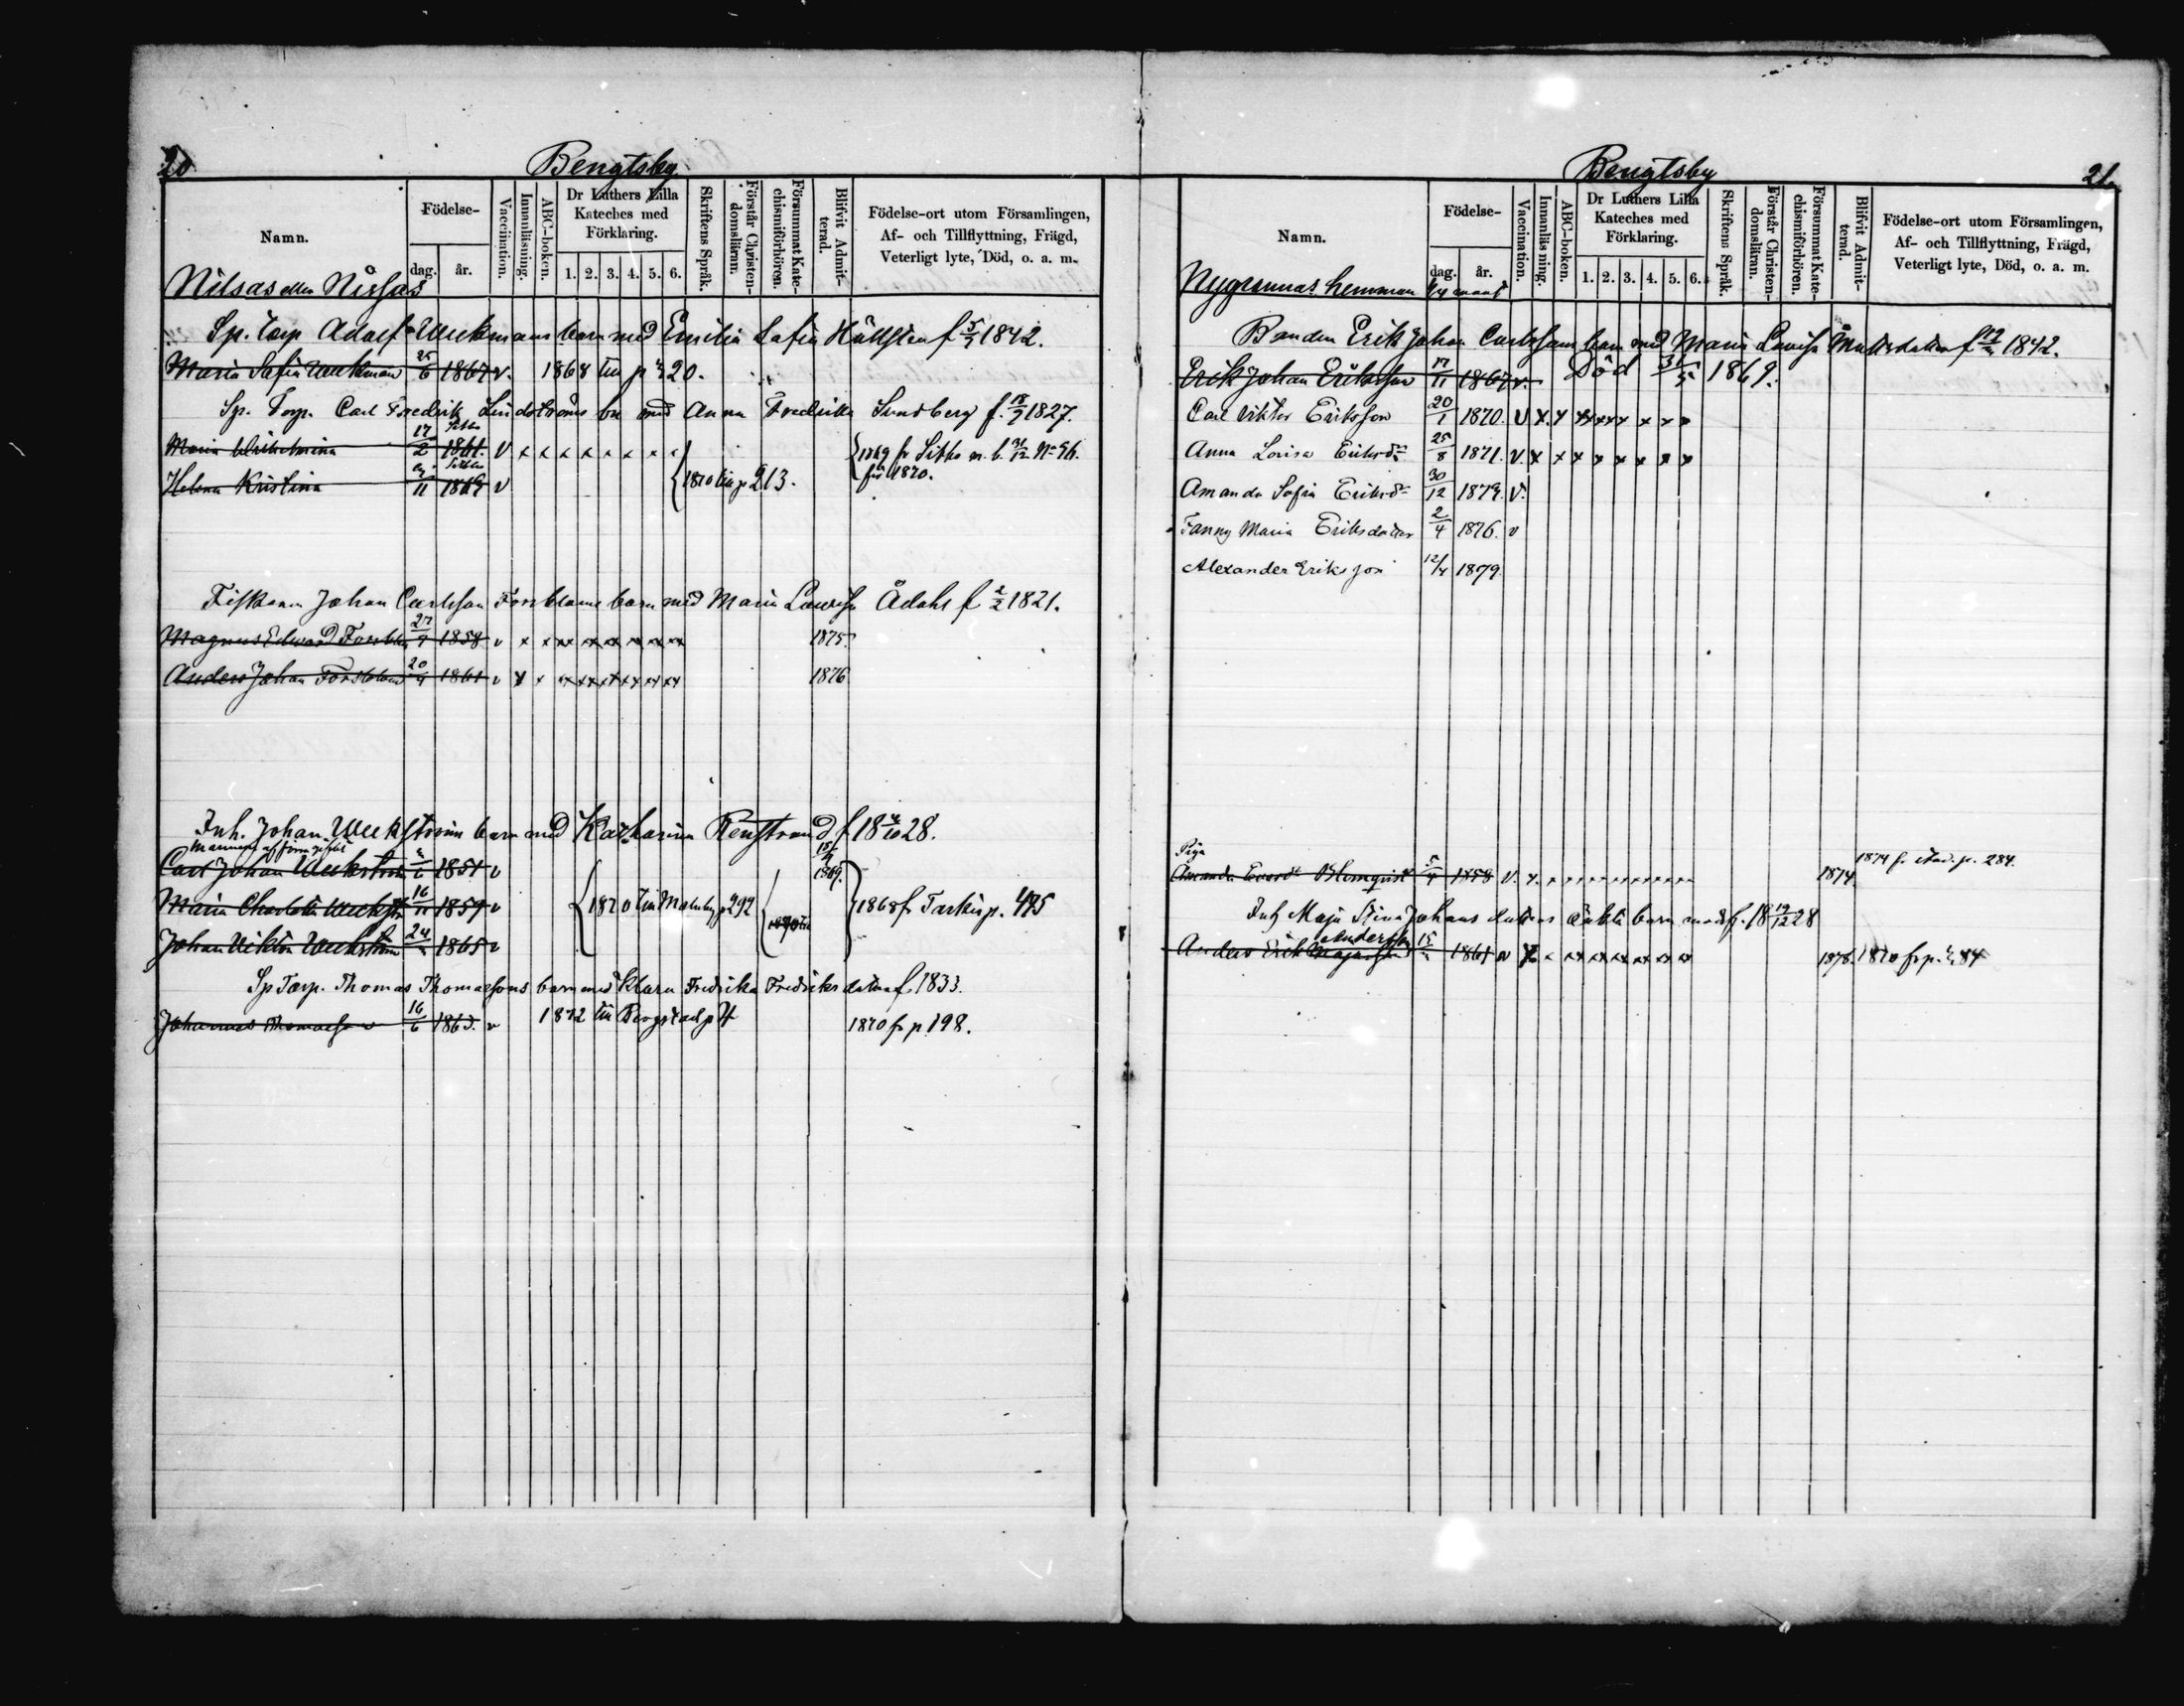 20
Bengtsby
Namn.
Födelse-
dag.
år.
Vaccination.
Innanläsning.
ABC-boken.
Dr Luthers Lilla Kateches med Förklaring.
1. 2. 3. 4. 5. 6.
Skriftens Språk.
Förstår Christen-domsläran.
Försummat Kate-chismiförhören.
Blifvit Admit-terad.
Födelse-ort utom Församlingen,
Af- och Tillflyttning, Frägd,
Veterligt lyte, Död, o. a. m.
Nilsas eller Nissas
Sp. Torp Adolf Weckmans barn med Emilia Sofia Hällsten f 5/3 1842.
Maria Sofia Weckman 25/6 1867 v. 1868 till p 20.
Sp. Torp. Carl Fredrik Lindströms bn med Anna Fredrika Sundberg f. 18/7 1827.
Maria Wilhelmina 17/2 Sibbo 1861. v x x x x x x x x {1869 fr Sibbo m. b. 31/12 No 96.
Helena Kristina /11 Sibbo 1869 v {1870 till p 213. 1870.
Fiskaren Johan Carlsson Forsbloms barn med Maria Lovisa Ådahl f 2/2 1821.
Magnus Edward Forsblom 27/9 1858 v x x xx xx xx xx xx xx 1875.
Anders Johan Forsblom 20/9 1861 v x x xx xx xx xx xx xx 1876
Inh. Johan Weckströms barn med Katharina Renstrand f 18 4/10 28.
Mannens af förra giftet
Carl Johan Weckström 1851 v 1869.
Maria Charlotta Weckstr 16/11 1859 v {1870 till Malmby p 292 { }1868 fr Tarkis p. 495
Johan Viktor Weckström 24 1865 v
Sp Torp. Thomas Thomassons barn med Klara Fredrika Fredriksdotter f. 1833.
Johannes Thomasson 16/6 1863. v 1872 till Bergstad p 4 1870 fr p 198.
Bengtsby
21.
Namn.
Födelse-
dag.
år.
Vaccination.
Innanläsning.
ABC-boken.
Dr Luthers Lilla Kateches med Förklaring.
1. 2. 3. 4. 5. 6.
Skriftens Språk.
Förstår Christen-domsläran.
Försummat Kate-chismiförhören.
Blifvit Admit-terad.
Födelse-ort utom Församlingen,
Af- och Tillflyttning, Frägd,
Veterligt lyte, Död, o. a. m.
hemman
Bonden Erik Johan Carlssons barn med Maria Lovisa Mattsdotter f 1842.
Erik Johan Eriksson 17/11 1867 v. Död 31/5 1869.
Carl Viktor Eriksson 20/1 1870. v x. x xx xx xx x x x
Anna Lovisa Eriksdr 25/8 1871. v. x x x x x x x x
Amanda Sofia Eriksdr 30/12 1879. v.
Fanny Maria Eriksdotter 2/4 1876. v
Alexander Eriksson 12/4 1879.
Piga
Amanda 5 1858 v. x. x x x x x x x x x x x 1874. 1874 fr p. 284.
Inh Maja Stina Johansdotters oäkta barn f. 18 19/12 28
Andersson
Anders Erik 15 1861 v x x xx xx xx xx xx xx 1878. 1870 fr p. 84